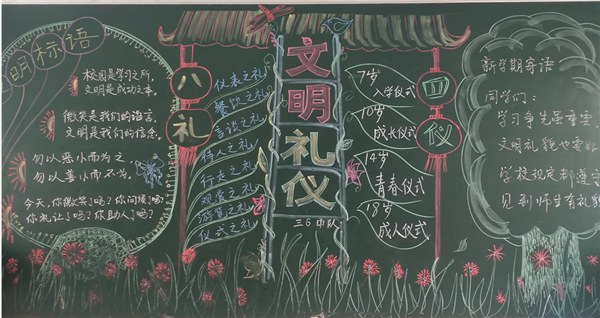 明标语
校园是学习之所，
文明是成功之本。
微笑是我们的语言，
文明是我们的信念。
勿以恶小而为之，
勿以善小而不为。
今天，你微笑了吗？你问候了吗？
你礼让了吗？你助人了吗？
八礼
仪表之礼
餐饮之礼
言谈之礼
待人之礼
行走之礼
观赏之礼
游览之礼
仪式之礼
文明礼仪
三6中队
7岁
入学仪式
10岁
成长仪式
14岁
青春仪式
18岁
成人仪式
四仪
新学期寄语
同学们：
学习争先虽重要
文明礼貌也要
学校规定都遵守
见到师生有礼貌